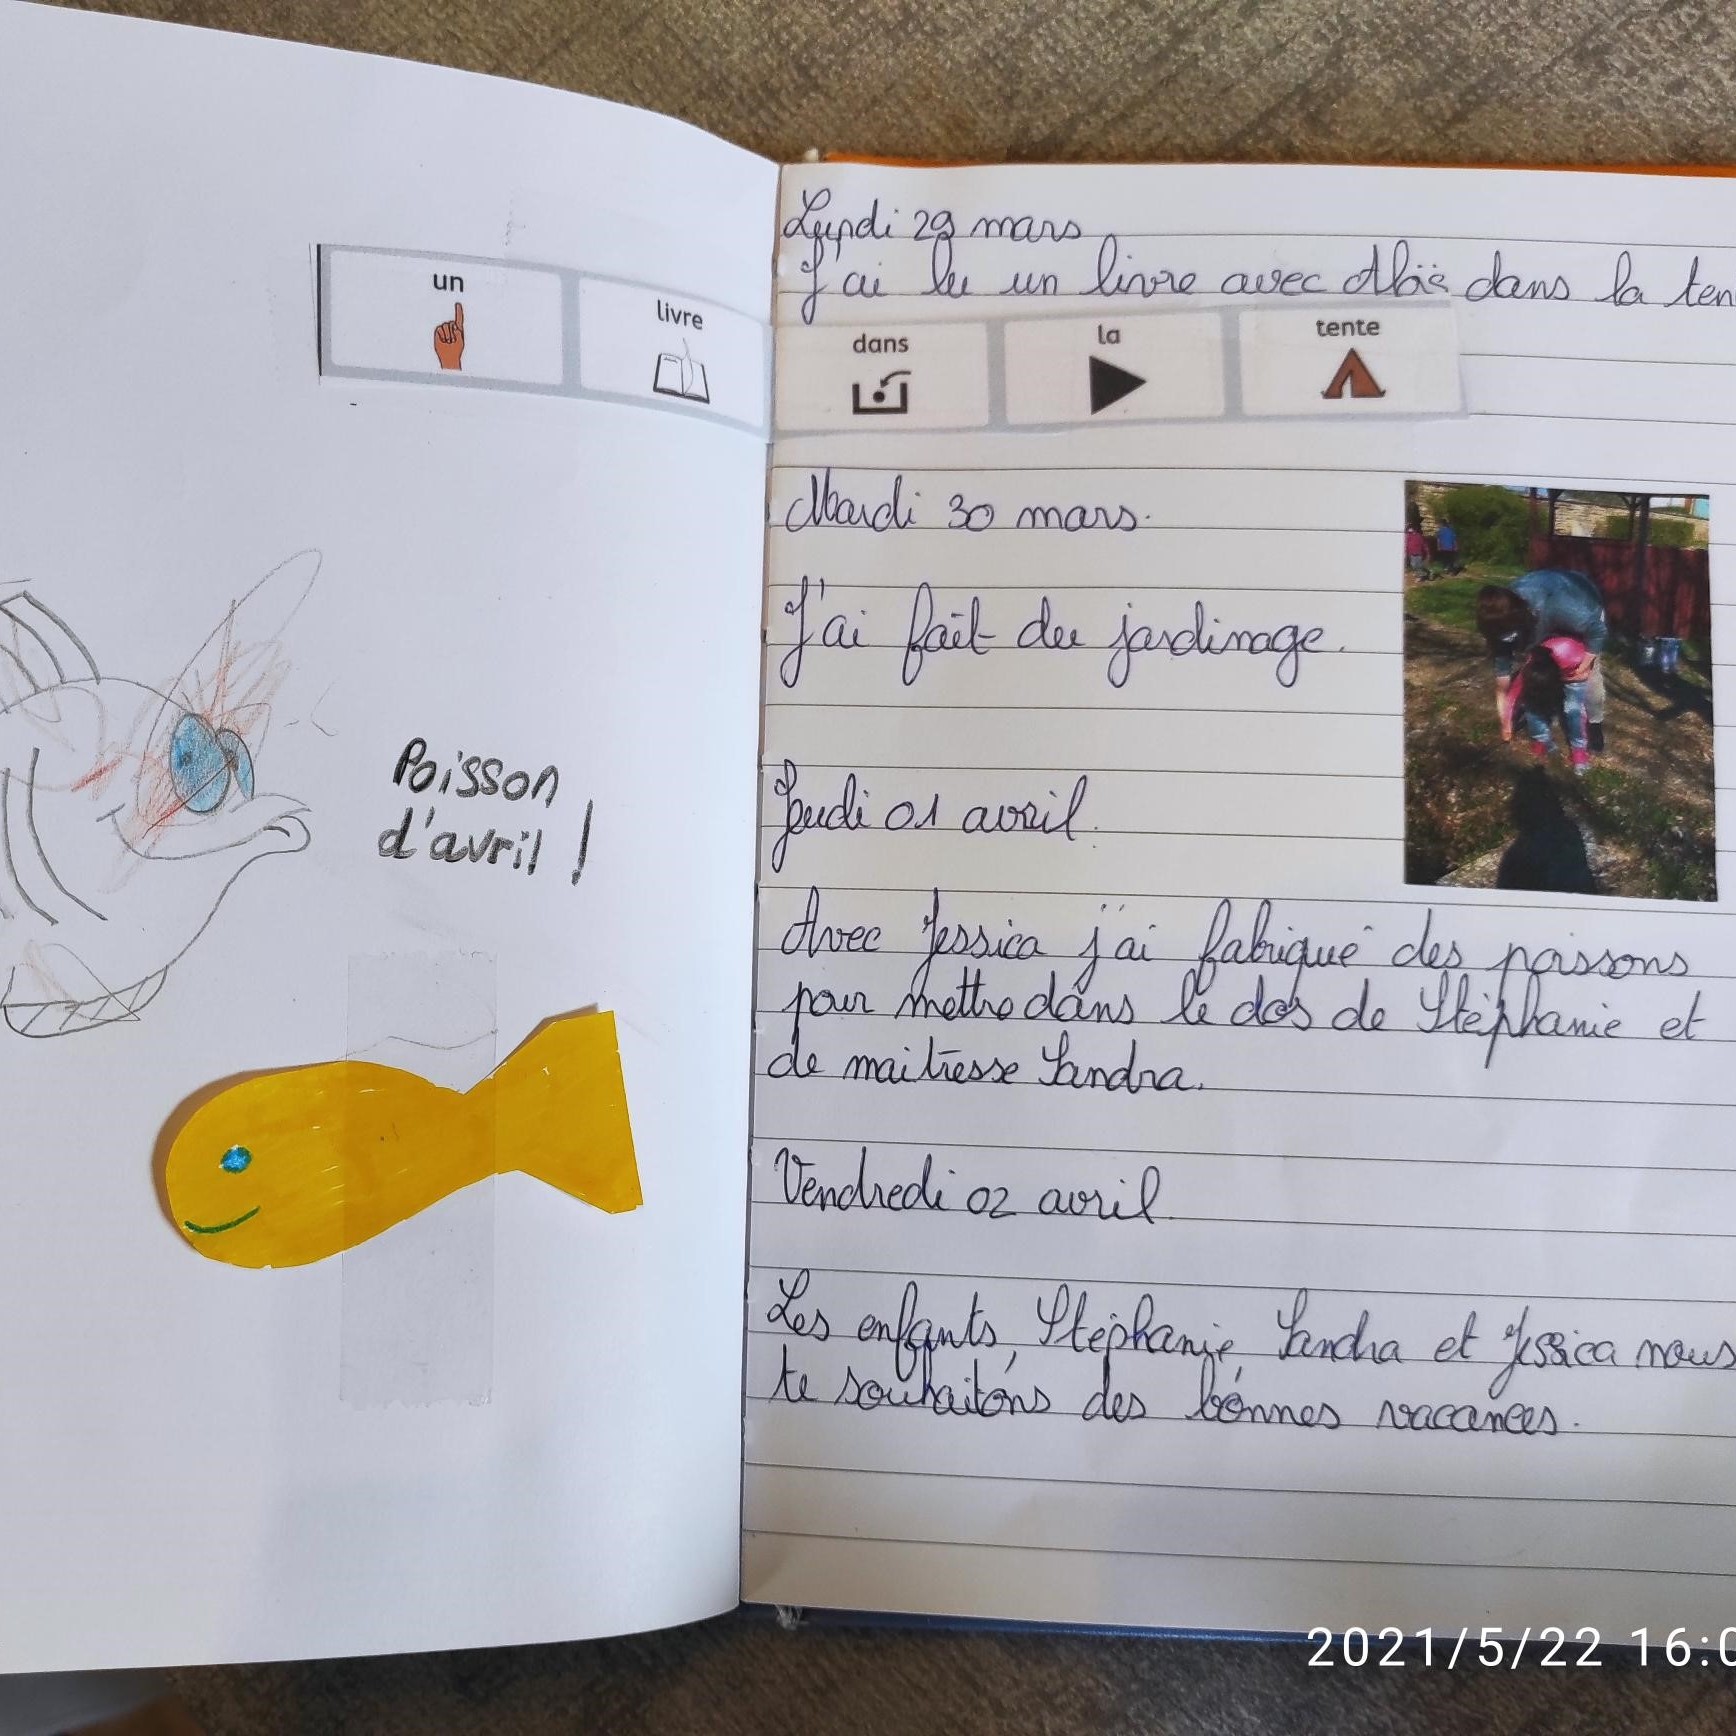 un
livre
Poisson
d'avril !
Lundi 29 mars
J'ai lu un livre avec dans la ten
dans
la
tente
Mardi 30 mars.
J'ai fait du jardinage.
Jeudi 01 avril.
Avec Jessica j'ai fabriqué des poissons
pour mettre dans le dos de Stéphanie et
de maitresse Sandra.
Vendredi 02 avril.
Les enfants, Stéphanie, Sandra et Jessica nous
te souhaitons des bonnes vacances.
2021/5/22 16:0